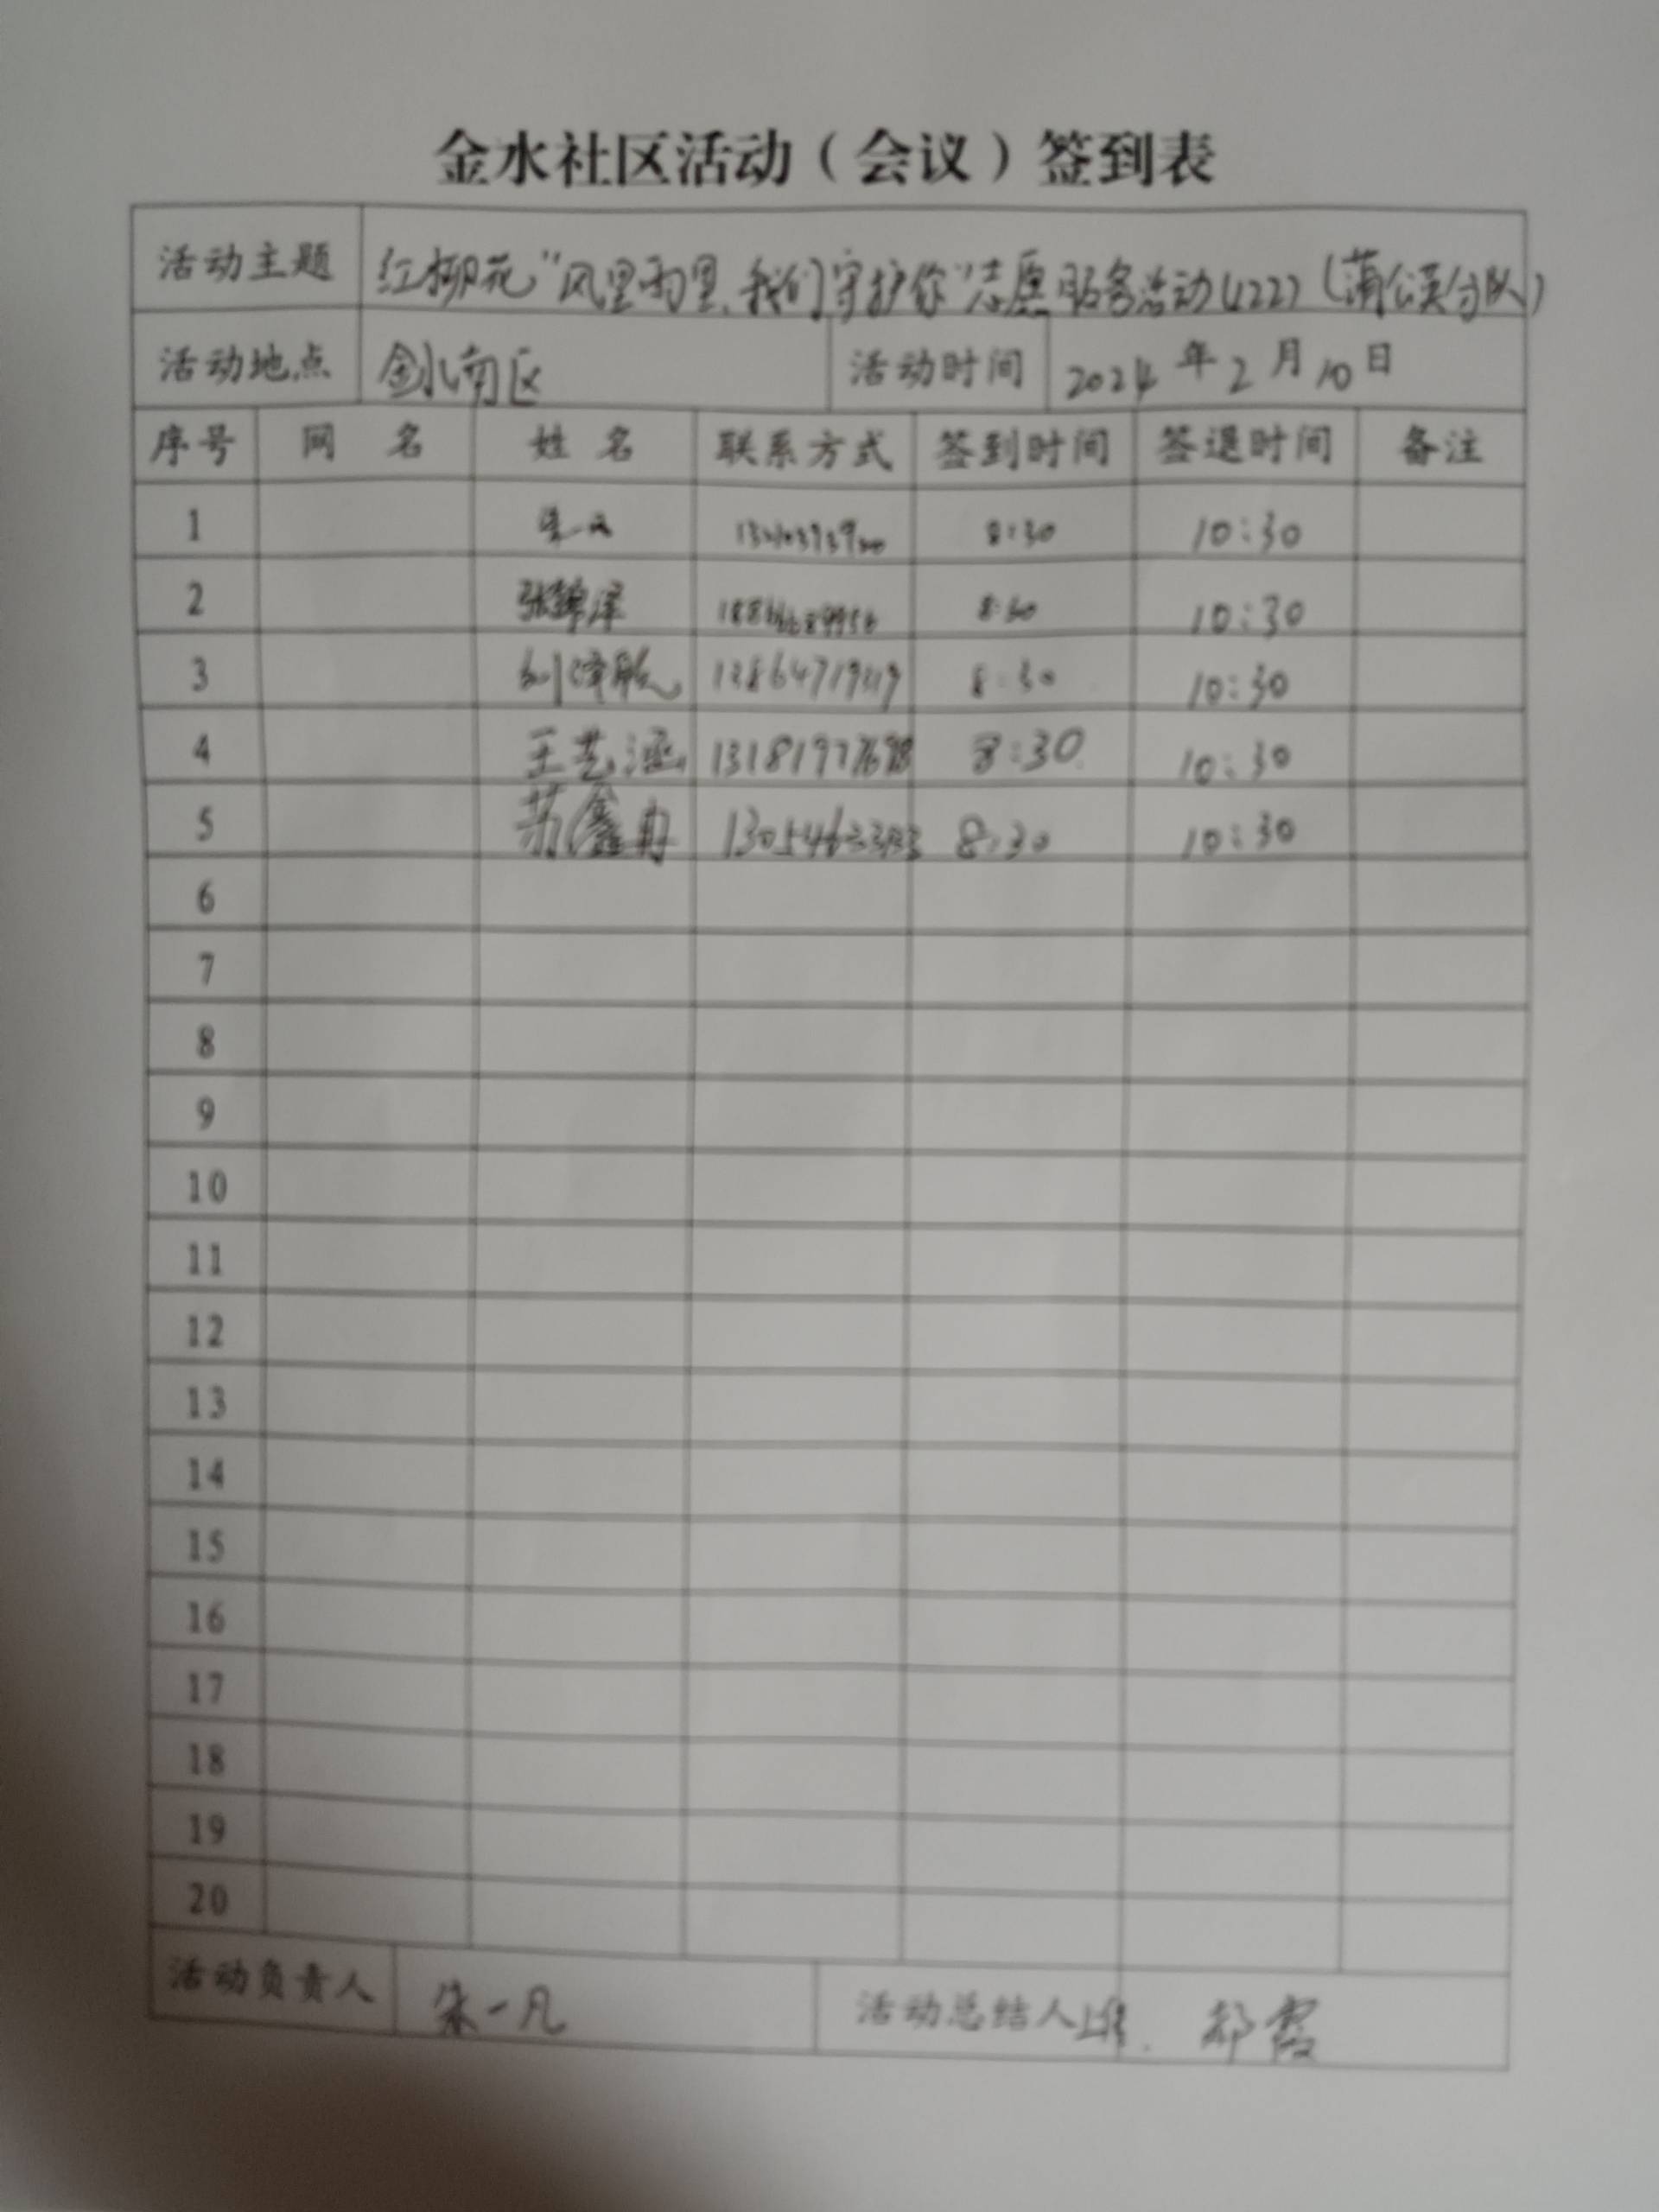 金水社区活动（会议）签到表
活动主题 红柳花“风里雨里,我们守护你”志愿服务活动(222)(蒲公英分队)
活动地点 金水南区 活动时间 2024年2月10日
序号 网名 姓名 联系方式 签到时间 签退时间 备注
1 8:30 10:30
2 张锦泽 8:30 10:30
3 8:30 10:30
4 王艺涵 8:30 10:30
5 苏鑫冉 8:30 10:30
6
7
8
9
10
11
12
13
14
15
16
17
18
19
20
活动负责人 朱一凡 活动总结人 郝霞